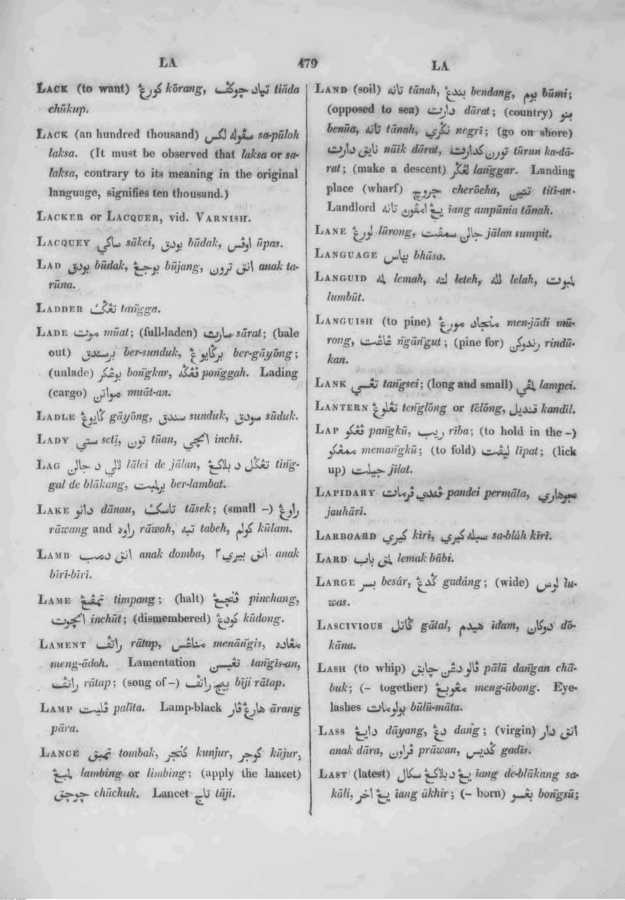 LA 479 LA
LACK (to want) کورڠ kōrang, تياد چوکف tiāda
chūkup.
LACK (an hundred thousand) سڤوله لکس sa-pūloh
laksa. (It must be observed that laksa or sa-
laksa, contrary to its meaning in the original
language, signifies ten thousand.)
LACKER or LACQUER, vid. VARNISH.
LACQUEY ساکي sākei, بودق būdak, اوڤس ūpas.
LAD بودق būdak, بوجڠ būjang, انق ترون anak ta-
rūna.
LADDER تڠݢ tangga.
LADE موت mūat; (full-laden) سارت sārat; (bale
out) برسندق ber-sunduk, برݢايوڠ ber-gāyōng;
(unlade) بوڠکر bongkar, ڤڠݢه ponggah. Lading
(cargo) مواتن mūāt-an.
LADLE ݢايوڠ gāyōng, سندق sunduk, سودق sūduk.
LADY ستي seti, تون tūan, انچي inchi.
LAG لالي د جالن lālei de jālan, تڠݢل د بلاکڠ ting-
gal de blākang, برلمبت ber-lambat.
LAKE دانو dānau, تاسک tāsek; (small –) راوڠ
rāwang and راوه rāwah, تبه tabeh, کولم kūlam.
LAMB انق دمب anak domba, انق بيري٢ anak
bīri-bīri.
LAME تمڤڠ timpang; (halt) ڤنچڠ pinchang,
انچوت inchūt; (dismembered) کودڠ kūdong.
LAMENT راتڤ rātap, مناڠس menāngis, مڠاده
meng-ādoh. Lamentation تڠيسن tangis-an,
راتڤ rātap; (song of –) بيج راتڤ bīji rātap.
LAMP ڤليت palīta. Lamp-black هارڠ ڤار ārang
pāra.
LANCE تمبق tombak, کنجر kunjur, کوجر kūjur,
لمبڠ lambing or limbing; (apply the lancet)
چوچق chūchuk. Lancet تاج tāji.
LAND (soil) تانه tānah, بندڠ bendang, بوم būmi;
(opposed to sea) دارت dārat; (country) بنو
benūa, تانه tānah, نݢري negri; (go on shore)
نايق دارت nāik dārat, تورن کدارت tūrun ka-dā-
rat; (make a descent) لڠݢر langgar. Landing
place (wharf) چروچه cherōcha, تتين titi-an.
Landlord يڠ امڤون تانه iang ampūnia tānah.
LANE لورڠ lūrong, جالن سمڤت jālan sumpit.
LANGUAGE بهاس bhāsa.
LANGUID لمه lemah, لته leteh, لله lelah, لمبوت
lumbūt.
LANGUISH (to pine) منجاد مورڠ men-jādi mū-
rong, ڠاڠت ngāngut; (pine for) رندوکن rindū-
kan.
LANK تڠسي tangsei; (long and small) لمڤي lampei.
LANTERN تڠلوڠ tenglōng or tēlōng, قنديل kandil.
LAP ڤڠکو pangkū, ريب riba; (to hold in the –)
ممڠکو memangkū; (to fold) ليڤت līpat; (lick
up) جيلت jīlat.
LAPIDARY ڤندي ڤرمات pandei permāta, جوهاري
jauhāri.
LARBOARD کيري kīri, سبله کيري sa-blāh kīri.
LARD لمق باب lemak bābi.
LARGE بسر besār, ݢدڠ gudāng; (wide) لوس lu-
was.
LASCIVIOUS ݢاتل gātal, هيدم īdam, دوکان dō-
kāna.
LASH (to whip) ڤالو دڠن چابق pālū dangan chā-
buk; (– together) مڠوبڠ meng-ūbong. Eye-
lashes بولومات būlū-māta.
LASS دايڠ dāyang, دڠ dang; (virgin) انق دار
anak dāra, ڤراون prāwan, ݢديس gadis.
LAST (latest) يڠ دبلاکڠ سکال iang de-blākang sa-
kāli, يڠ اخر iang ākhir; (– born) بڠسو bongsū;